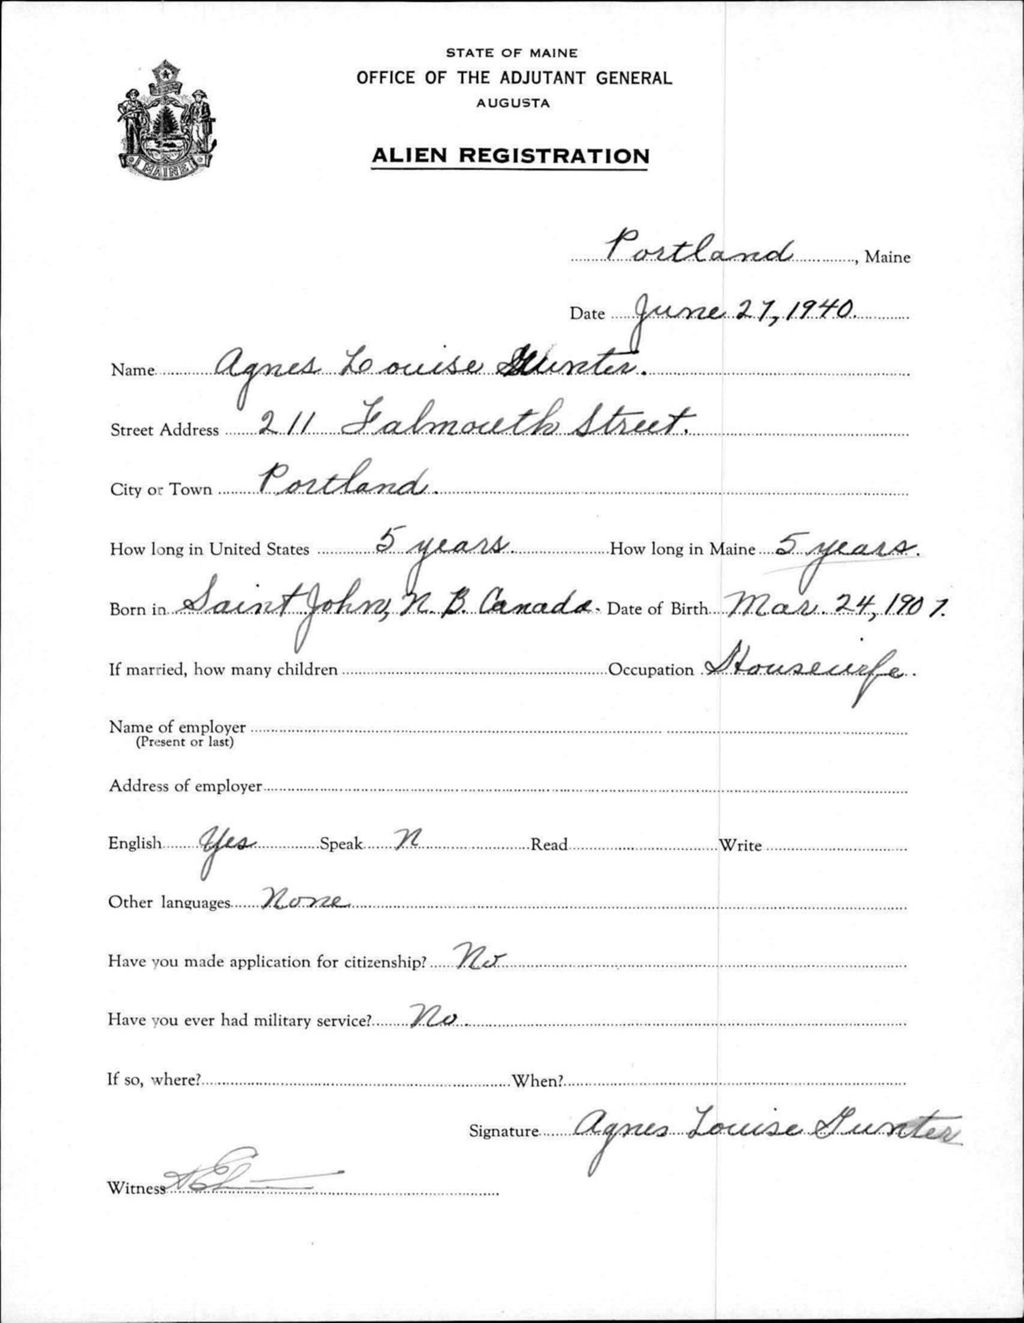 STATE OF MAINE
OFFICE OF THE ADJUTANT GENERAL
AUGUSTA
ALIEN REGISTRATION
MAINE
Portland, Maine
Date June 27, 1940.
Name Agnes Louise Gunter.
Street Address 211 Falmouth Street.
City or Town Portland.
How long in United States 5 years. How long in Maine 5 years.
Born in Saint John, N. B. Canada. Date of Birth Mar. 24, 1907.
If married, how many children Occupation Housewife.
Name of employer
(Present or last)
Address of employer
English Yes Speak N Read Write
Other languages None
Have you made application for citizenship? No
Have you ever had military service? No.
If so, where? When?
Signature Agnes Louise Gunter
Witness